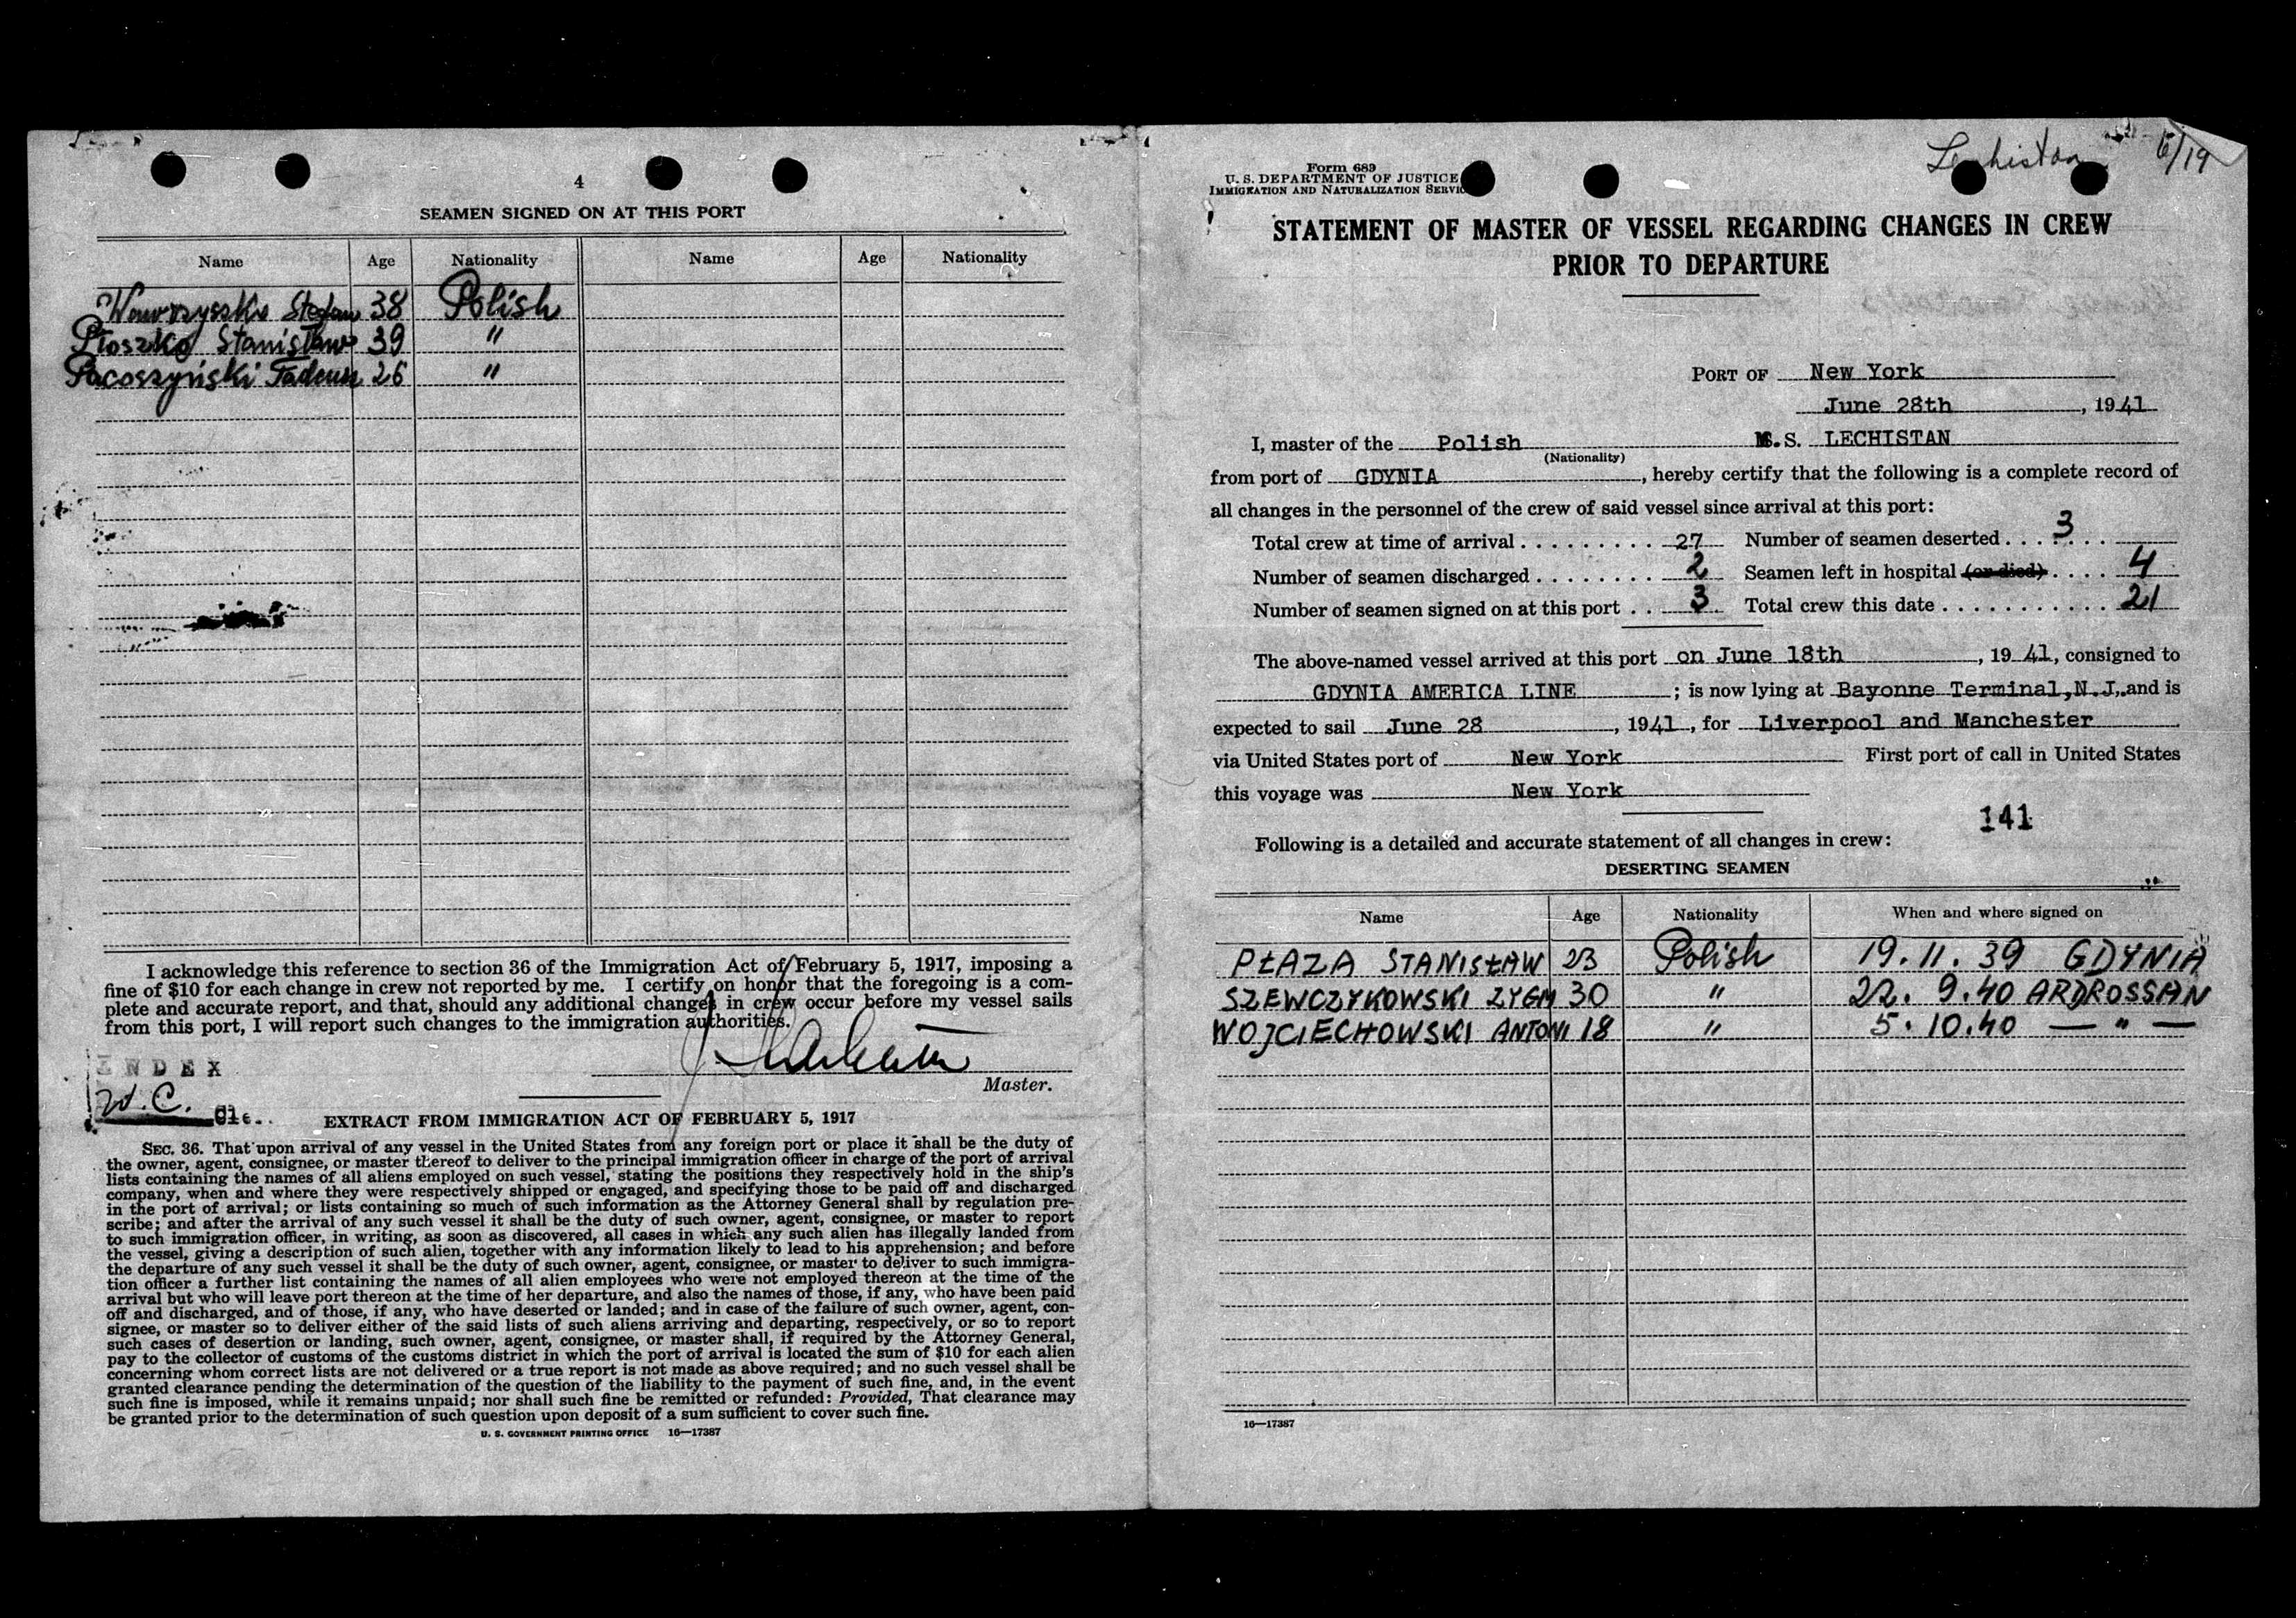 4
SEAMEN SIGNED ON AT THIS PORT
Name Age Nationality Name Age Nationality
Wawrzyszko Stefan 38 Polish
Płoszko Stanisław 39 "
Pacoszyński Tadeusz 26 "
I acknowledge this reference to section 36 of the Immigration Act of February 5, 1917, imposing a
fine of $10 for each change in crew not reported by me. I certify on honor that the foregoing is a com-
plete and accurate report, and that, should any additional changes in crew occur before my vessel sails
from this port, I will report such changes to the immigration authorities.
INDEX
Master.
W.C. Clk.
EXTRACT FROM IMMIGRATION ACT OF FEBRUARY 5, 1917
SEC. 36. That upon arrival of any vessel in the United States from any foreign port or place it shall be the duty of
the owner, agent, consignee, or master thereof to deliver to the principal immigration officer in charge of the port of arrival
lists containing the names of all aliens employed on such vessel, stating the positions they respectively hold in the ship's
company, when and where they were respectively shipped or engaged, and specifying those to be paid off and discharged
in the port of arrival; or lists containing so much of such information as the Attorney General shall by regulation pre-
scribe; and after the arrival of any such vessel it shall be the duty of such owner, agent, consignee, or master to report
to such immigration officer, in writing, as soon as discovered, all cases in which any such alien has illegally landed from
the vessel, giving a description of such alien, together with any information likely to lead to his apprehension; and before
the departure of any such vessel it shall be the duty of such owner, agent, consignee, or master to deliver to such immigra-
tion officer a further list containing the names of all alien employees who were not employed thereon at the time of the
arrival but who will leave port thereon at the time of her departure, and also the names of those, if any, who have been paid
off and discharged, and of those, if any, who have deserted or landed; and in case of the failure of such owner, agent, con-
signee, or master so to deliver either of the said lists of such aliens arriving and departing, respectively, or so to report
such cases of desertion or landing, such owner, agent, consignee, or master shall, if required by the Attorney General,
pay to the collector of customs of the customs district in which the port of arrival is located the sum of $10 for each alien
concerning whom correct lists are not delivered or a true report is not made as above required; and no such vessel shall be
granted clearance pending the determination of the question of the liability to the payment of such fine, and, in the event
such fine is imposed, while it remains unpaid; nor shall such fine be remitted or refunded: Provided, That clearance may
be granted prior to the determination of such question upon deposit of a sum sufficient to cover such fine.
U. S. GOVERNMENT PRINTING OFFICE 16—17387
Lechistan 6/19
Form 689
U. S. DEPARTMENT OF JUSTICE
IMMIGRATION AND NATURALIZATION SERVICE
STATEMENT OF MASTER OF VESSEL REGARDING CHANGES IN CREW
PRIOR TO DEPARTURE
PORT OF New York
June 28th, 1941
I, master of the Polish M.S. LECHISTAN
(Nationality)
from port of GDYNIA, hereby certify that the following is a complete record of
all changes in the personnel of the crew of said vessel since arrival at this port:
Total crew at time of arrival . . . . . . . . . . 27 Number of seamen deserted . . . . . . . 3
Number of seamen discharged . . . . . . . . 2 Seamen left in hospital (or died) . . . . 4
Number of seamen signed on at this port . . 3 Total crew this date . . . . . . . . . . . 21
The above-named vessel arrived at this port on June 18th, 19 41, consigned to
GDYNIA AMERICA LINE; is now lying at Bayonne Terminal, N.J. and is
expected to sail June 28, 1941, for Liverpool and Manchester
via United States port of New York First port of call in United States
this voyage was New York
141
Following is a detailed and accurate statement of all changes in crew:
DESERTING SEAMEN
Name Age Nationality When and where signed on
PŁAZA STANISŁAW 23 Polish 19.11.39 GDYNIA
SZEWCZYKOWSKI ZYGM 30 " 22.9.40 ARDROSSAN
WOJCIECHOWSKI ANTONI 18 " 5.10.40 — " —
16—17387